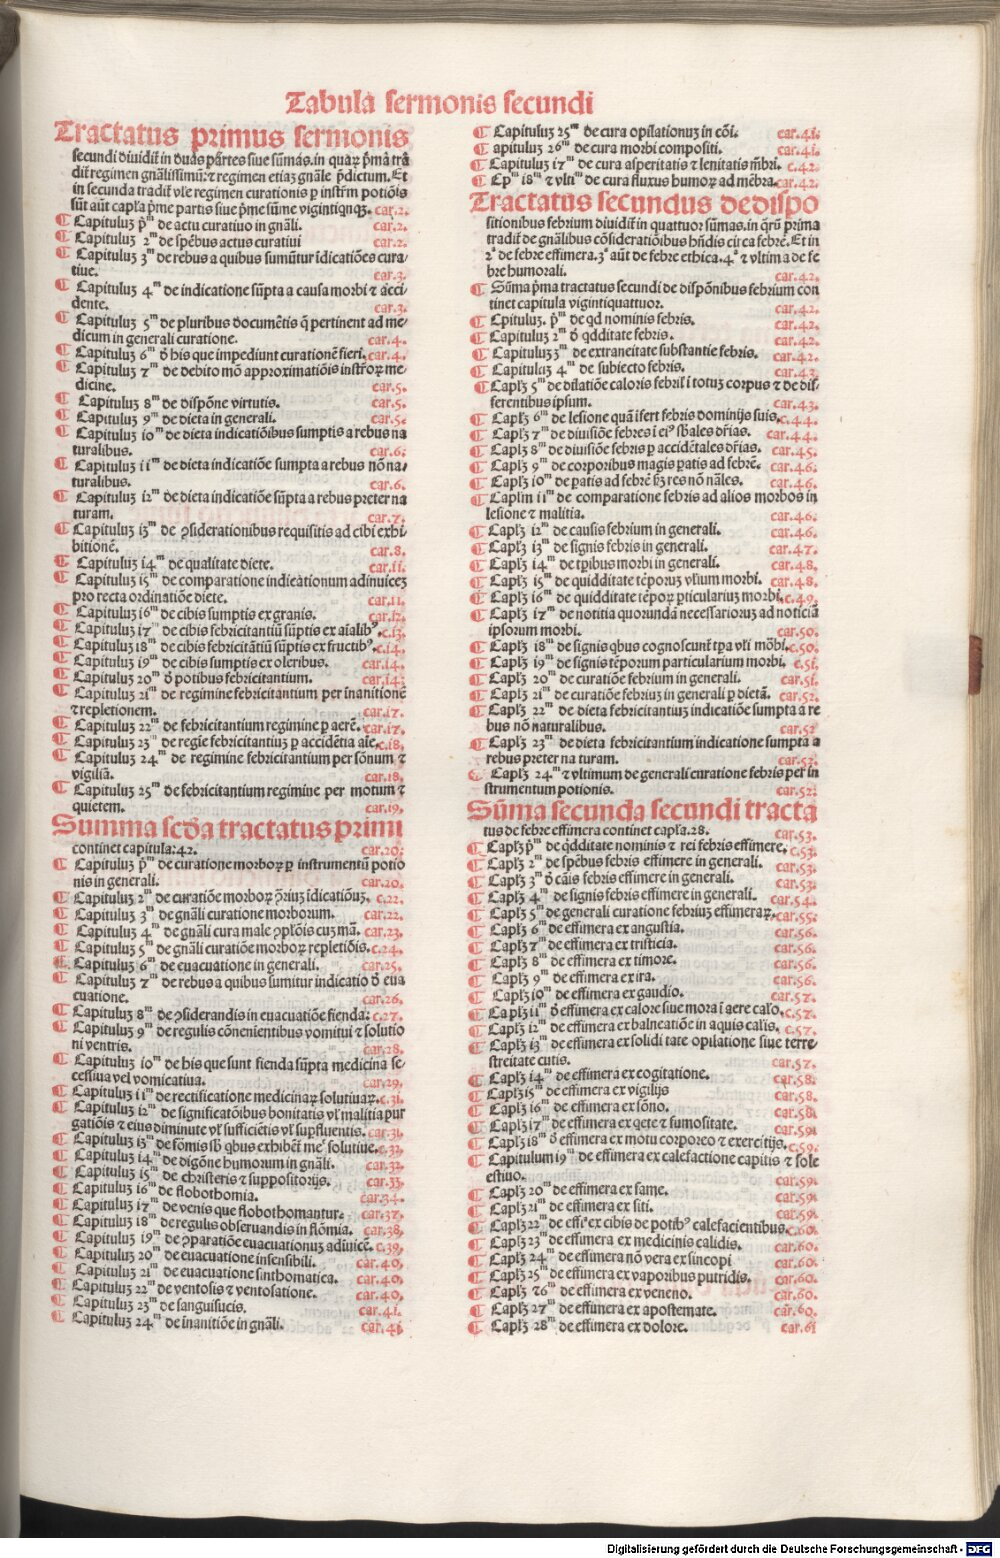 Tabula sermonis secundi
Tractatus primus sermonis
secundi diuidit̃ in duas partes siue sũmas. in quaꝝ p̃ma tra
dit̃ regimen gñalissimũ: ⁊ regimen etiaʒ gñale p̃dictum. Et
in secunda tradit̃ vl̃e regimen curationis p instr̃m potiõis
sũt aũt capl̃a p̃me partis siue p̃me sũme vigintiqnqʒ. car.2.
¶ Capituluʒ p̃ᵐ de actu curatiuo in gñali. car.2.
¶ Capituluʒ 2ᵐ de spẽbus actus curatiui car.2.
¶ Capituluʒ 3ᵐ de rebus a quibus sumũtur ĩdicatiões cura/
tiue. car.3.
¶ Capituluʒ 4ᵐ de indicatione sũpta a causa morbi ⁊ acci
dente. car.3.
¶ Capituluʒ 5ᵐ de pluribus documẽtis q̃ pertinent ad me/
dicum in generali curatione. car.4.
¶ Capituluʒ 6ᵐ õ his que impediunt curationẽ fieri. car.4.
¶ Capituluʒ 7ᵐ de debito mõ approximatiõis instr̃oꝝ me/
dicine. car.5.
¶ Capituluʒ 8ᵐ de dispõne virtutis. car.5.
¶ Capituluʒ 9ᵐ de dieta in generali. car.5.
¶ Capituluʒ 10ᵐ de dieta indicatiõibus sumptis a rebus na
turalibus. car.6.
¶ Capituluʒ 11ᵐ de dieta indicatiõe sumpta a rebus nõ na/
turalibus. car.6.
¶ Capituluʒ 12ᵐ de dieta indicatiõe sũpta a rebus preter na
turam. car.7.
¶ Capituluʒ 13ᵐ de ꝯsiderationibus requisitis ad cibi exhi
bitionẽ. car.8.
¶ Capituluʒ 14ᵐ de qualitate diete. car.11.
¶ Capituluʒ 15ᵐ de comparatione indicationum adinuiceʒ
pro recta ordinatiõe diete. car.11.
¶ Capituluʒ 16ᵐ de cibis sumptis ex granis. car.12.
¶ Capituluʒ 17ᵐ de cibis febricitantiũ sũptis ex aĩalibꝰ. c.13.
¶ Capituluʒ 18ᵐ de cibis febricitãtiũ sũptis ex fructibꝰ. c.14.
¶ Capituluʒ 19ᵐ de cibis sumptis ex oleribus. car.14.
¶ Capituluʒ 20ᵐ õ potibus febricitantium. car.14.
¶ Capituluʒ 21ᵐ de regimine febricitantium per inanitionẽ
⁊ repletionem. car.17.
¶ Capituluʒ 22ᵐ de febricitantium regimine p aerẽ. car.17.
¶ Capituluʒ 23ᵐ de regĩe febricitantiuʒ p accidẽtia aĩe. c.18.
¶ Capituluʒ 24ᵐ de regimine febricitantium per sõnum ⁊
vigiliã. car.18.
¶ Capituluʒ 25ᵐ de febricitantium regimine per motum ⁊
quietem. car.19.
Summa scđa tractatus primi
continet capitula: 42. car.20.
¶ Capituluʒ p̃ᵐ de curatione morboꝝ p instrumentũ potio
nis in generali. car.20.
¶ Capituluʒ 2ᵐ de curatiõe morboꝝ ꝓriuʒ ĩdicatiõuʒ. c.22.
¶ Capituluʒ 3ᵐ de gñali curatione morborum. car.22.
¶ Capituluʒ 4ᵐ de gñali cura male ꝯplõis cuʒ mã. car.23.
¶ Capituluʒ 5ᵐ de gñali curatiõe morboꝝ repletiõis. c.24.
¶ Capituluʒ 6ᵐ de euacuatione in generali. car.25.
¶ Capituluʒ 7ᵐ de rebus a quibus sumitur indicatio õ eua
cuatione. car.26.
¶ Capituluʒ 8ᵐ de ꝯsiderandis in euacuatiõe fienda. c.27.
¶ Capituluʒ 9ᵐ de regulis cõnenientibus vomitui ⁊ solutio
ni ventris. car.28.
¶ Capituluʒ 10ᵐ de his que sunt fienda sũpta medicina se/
cessiua vel vomicatiua. car.29.
¶ Capituluʒ 11ᵐ de rectificatione medicinaꝝ solutiuaꝝ. c.31.
¶ Capituluʒ 12ᵐ de significatõibus bonitatis vl̃ malitia pur
gatiõis ⁊ eius diminute vl̃ sufficiẽtis vl̃ supfluentis. car.31.
¶ Capituluʒ 13ᵐ de fõmis sb̃ qbus exhibẽt̃ meᵉ solutiue. c.32.
¶ Capituluʒ 14ᵐ de digõne humorum in gñali. car.32.
¶ Capituluʒ 15ᵐ de christeris ⁊ suppositorijs. car.33.
¶ Capituluʒ 16ᵐ de flobothomia. car.34.
¶ Capituluʒ 17ᵐ de venis que flobothomantur. car.37.
¶ Capituluʒ 18ᵐ de regulis obseruandis in flõmia. car.38.
¶ Capituluʒ 19ᵐ de ꝯparatiõe euacuationuʒ adĩuicẽ. c.39.
¶ Capituluʒ 20ᵐ de euacuatione insensibili. car.40.
¶ Capituluʒ 21ᵐ de euacuatione sinthomatica. car.40.
¶ Capituluʒ 22ᵐ de ventosis ⁊ ventosatione. car.40.
¶ Capituluʒ 23ᵐ de sanguisucis. car.41.
¶ Capituluʒ 24ᵐ de inanitiõe in gñali. car.41
¶ Capituluʒ 25ᵐ de cura opilationuʒ in cõi. car.41.
¶ apituluʒ 26ᵐ de cura morbi compositi. car.41.
¶ Capituluʒ 17ᵐ de cura asperitatis ⁊ lenitatis mẽbri. c.42.
¶ Cpᵐ 18ᵐ ⁊ vltiᵐ de cura fluxus humoꝝ ad mẽbra. car.42.
Tractatus secundus de dispo
sitionibus febrium diuidit̃ in quattuor sũmas. in qrũ prima
tradit̃ de gñalibus cõsideratiõibus hñdis circa febrẽ. Et in
2ᵃ de febre effimera. 3ᵃ aũt de febre ethica. 4ᵃ ⁊ vltima de fe
bre humorali. car.42.
¶ Sũma p̃ma tractatus secundi de dispõnibus febrium con
tinet capitula vigintiquattuor. car.42.
¶ Cpituluʒ. p̃ᵐ de qd nominis febris. car.42.
¶ Capituluʒ 2ᵐ õ qdditate febris. car.42.
¶ Capituluʒ 3ᵐ de extraneitate substantie febris. car.42.
¶ Capituluʒ 4ᵐ de subiecto febris. car.43.
¶ Capl̃ʒ 5ᵐ de dilatiõe caloris febril̃ ĩ totuʒ corpus ⁊ de dif
ferentibus ipsum. car.43.
¶ Capl̃ʒ 6ᵐ de lesione quã ĩfert febris dominijs suis. c.44.
¶ Capl̃ʒ 7ᵐ de diuisiõe febres ĩ eiꝰ sb̃ales dr̃ias. car.44.
¶ Capl̃ʒ 8ᵐ de diuisiõe febris p accidẽtales dr̃ias. car.45.
¶ Capl̃ʒ 9ᵐ de corporibus magis patis ad febrẽ. car.46.
¶ Capl̃ʒ 10ᵐ de patis ad febrẽ sʒ res nõ nãles. car.46.
¶ Capl̃m 11ᵐ de comparatione febris ad alios morbos in
lesione ⁊ malitia. car.46.
¶ Capl̃ʒ 12ᵐ de causis febrium in generali. car.46.
¶ Capl̃ʒ 13ᵐ de signis febris in generali. car.47.
¶ Capl̃ʒ 14ᵐ de tp̃ibus morbi in generali. car.48.
¶ Capl̃ʒ 15ᵐ de quidditate tẽporuʒ vl̃ium morbi. car.48.
¶ Capl̃ʒ 16ᵐ de quidditate tẽpoꝝ pticulariuʒ morbi. c.49.
¶ Capl̃ʒ 17ᵐ de notitia quorundã necessariorus ad noticiã
ipsorum morbi. car.50.
¶ Capl̃ʒ 18ᵐ de signis qbus cognoscunt̃ tp̃a vl̃i mõbi. c.50.
¶ Capl̃ʒ 19ᵐ de signis tẽporum particularium morbi. c.51.
¶ Capl̃ʒ 20ᵐ de curatiõe febrium in generali. car.51.
¶ Capl̃ʒ 21ᵐ de curatiõe febriuʒ in generali p dietã. car.52.
¶ Capl̃ʒ 22ᵐ de dieta febricitantiuʒ indicatiõe sumpta a re
bus nõ naturalibus. car.52
¶ Capl̃ʒ 23ᵐ de dieta febricitantium indicatione sumpta a
rebus preter na turam. car.52.
¶ Capl̃ʒ 24ᵐ ⁊ vltimum de generali curatione febris per in
strumentum potionis. car.52.
Sũma secunda secundi tracta
tus de febre effimera continet capl̃a. 28. car.53.
¶ Capl̃ʒ p̃ᵐ de q̃dditate nominis ⁊ rei febris effimere. c.53.
¶ Capl̃ʒ 2ᵐ de spẽbus febris effimere in generali. car.53.
¶ Capl̃ʒ 3ᵐ õ cãis febris effimere in generali. car.53.
¶ Capl̃ʒ 4ᵐ de signis febris effimere in generali. car.54.
¶ Capl̃ʒ 5ᵐ de generali curatione febriuʒ effimeraꝝ. car.55.
¶ Capl̃ʒ 6ᵐ de effimera ex angustia. car.56.
¶ Capl̃ʒ 7ᵐ de effimera ex tristicia. car.56.
¶ Capl̃ʒ 8ᵐ de effimera ex timore. car.56.
¶ Capl̃ʒ 9ᵐ de effimera ex ira. car.56.
¶ Capl̃ʒ 10ᵐ de effimera ex gaudio. car.57.
¶ Ca pl̃ʒ 11ᵐ õ effimera ex calore siue mora ĩ aere cal̃o. c.57.
¶ Capl̃ʒ 12ᵐ de effimera ex balneatiõe in aquis cal̃is. c.57.
¶ Capl̃ʒ 13ᵐ de effimera ex solidi tate opilatione siue terre/
streitate cutis. car.57.
¶ Capl̃ʒ 14ᵐ de effimera ex cogitatione. car.58.
¶ Capl̃ʒ 15ᵐ de effimera ex vigilijs car.58.
¶ Capl̃ʒ 16ᵐ de effimera ex sõno. car.58.
¶ Capl̃ʒ 17ᵐ de effimera ex qete ⁊ fumositate. car.59.
¶ Capl̃ʒ 18ᵐ õ effimera ex motu corporeo ⁊ exercitijs. c.59.
¶ Capitulum 19ᵐ de effimera ex calefactione capitis ⁊ sole
estiuo. car.59.
¶ Capl̃ʒ 20ᵐ de effimera ex fame. car.59.
¶ Capl̃ʒ 21ᵐ de effimera ex siti. car.59.
¶ Capl̃ʒ 22ᵐ de effiᵉ ex cibis de potibꝰ calefacientibus. c.60.
¶ Capl̃ʒ 23ᵐ de effimera ex medicinis calidis. car.60.
¶ Capl̃ʒ 24ᵐ de effimera nõ vera ex sincopi car.60.
¶ Capl̃ʒ 25ᵐ de effimera ex vaporibus putridis. car.60.
¶ Capl̃ʒ 26ᵐ de effimera ex veneno. car.60.
¶ Capl̃ʒ 27ᵐ de effimera ex apostemate. car.60.
¶ Capl̃ʒ 28ᵐ de effimera ex dolore. car.61
Digitalisierung gefördert durch die Deutsche Forschungsgemeinschaft - DFG